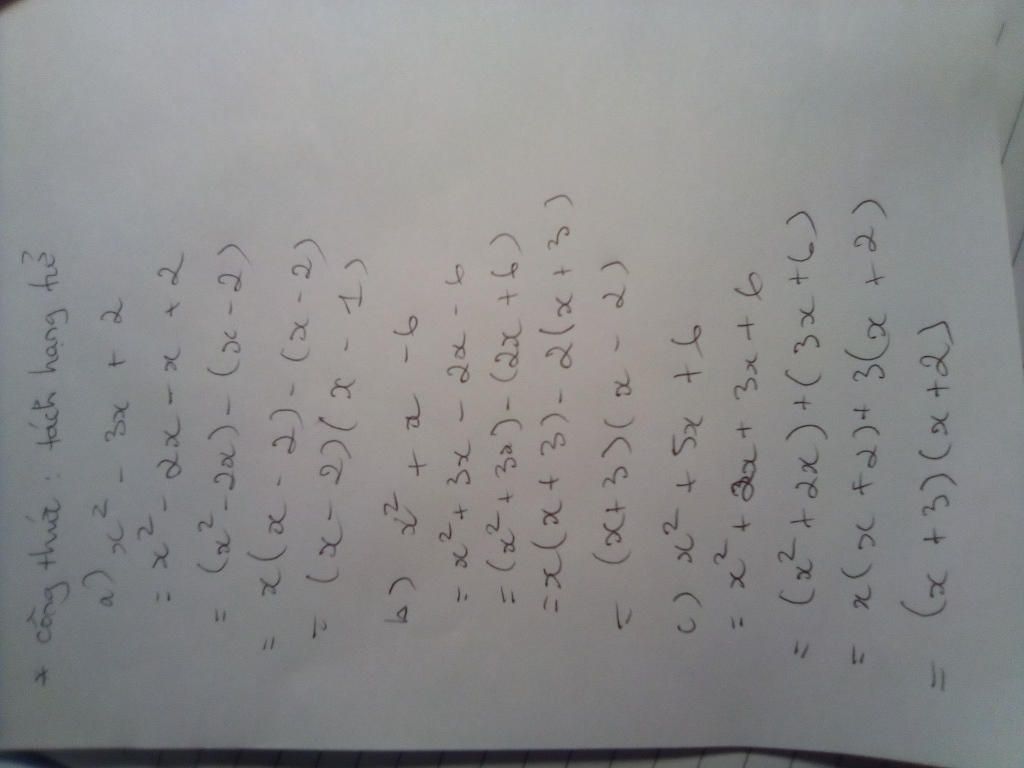 * công thức : tách hạng tử
a) x² - 3x + 2
= x² - 2x - x + 2
= (x² - 2x) - (x - 2)
= x(x - 2) - (x - 2)
= (x - 2)(x - 1)
b) x² + x - 6
= x² + 3x - 2x - 6
= (x² + 3x) - (2x + 6)
= x(x + 3) - 2(x + 3)
= (x + 3)(x - 2)
c) x² + 5x + 6
= x² + 2x + 3x + 6
= (x² + 2x) + (3x + 6)
= x(x + 2) + 3(x + 2)
= (x + 3)(x + 2)